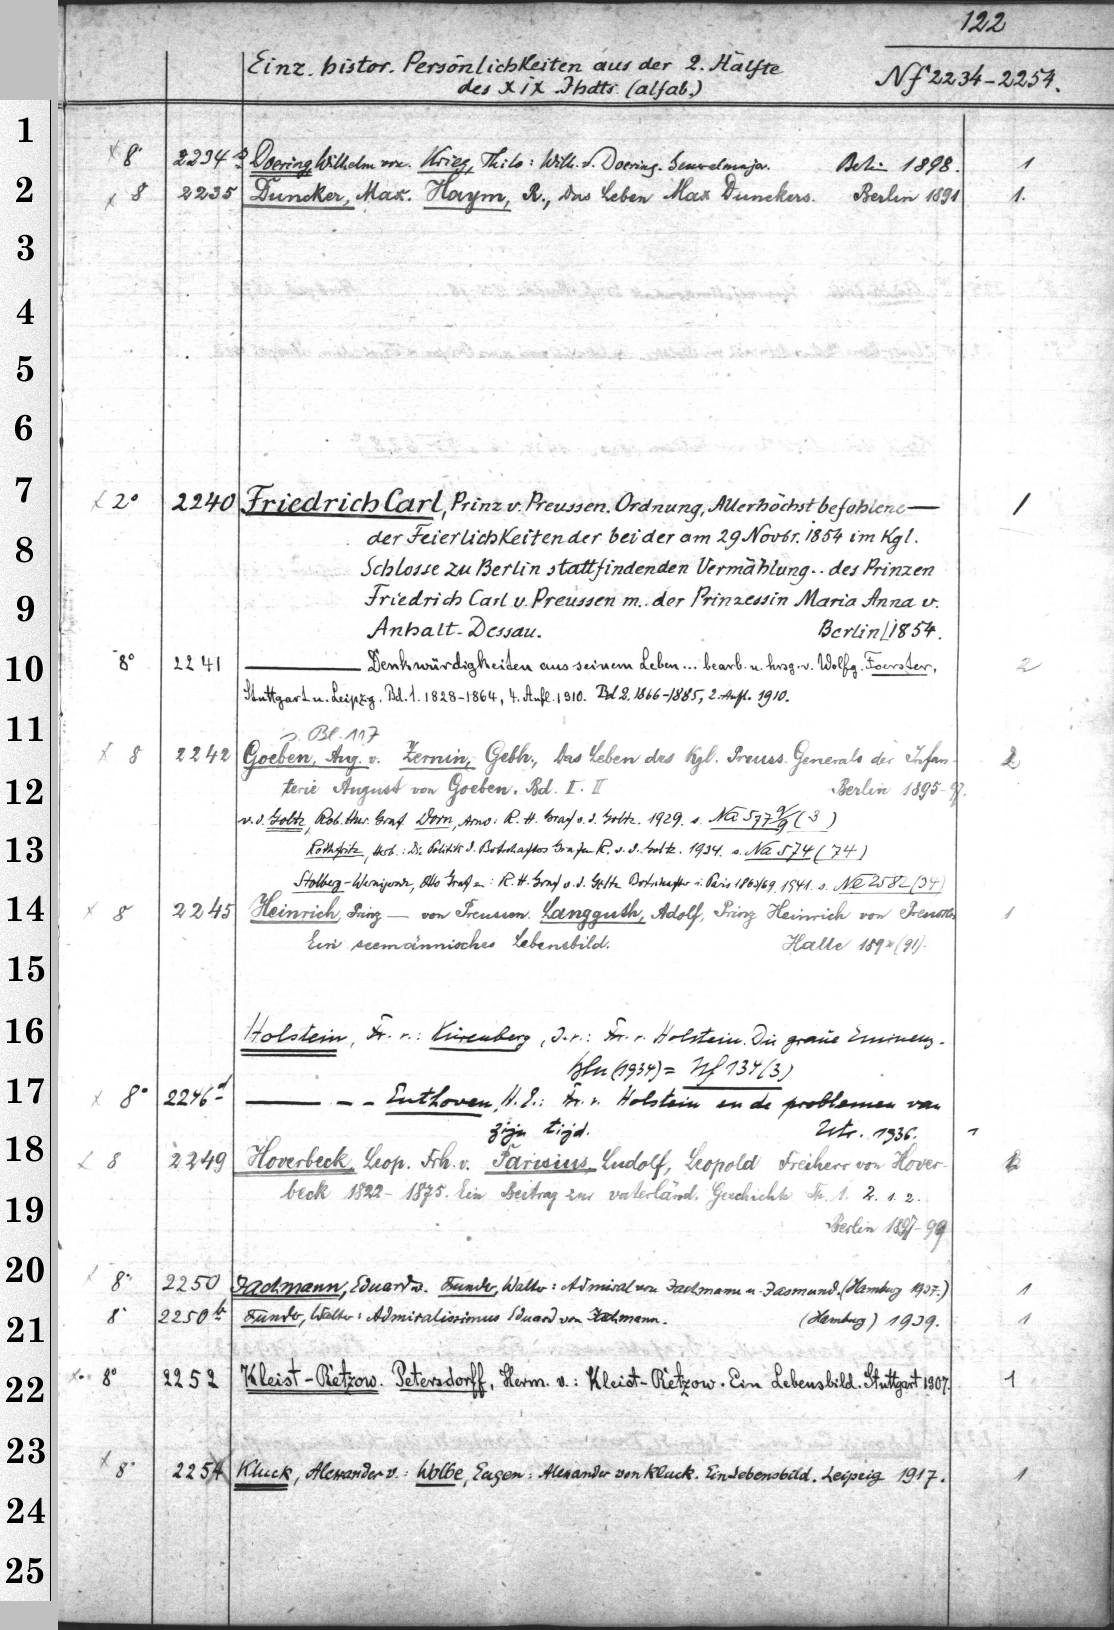 122
Einz. histor. Persönlichkeiten aus der 2. Hälfte
des XIX Jhdts. (alfab.)
Nf 2234-2254.
1
x 8° 2234 a Doering, Wilhelm von. Krieg, Thilo: Wilh. v. Doering. Berlin 1898. 1
2
x 8 2235 Duncker, Max. Haym, R., Das Leben Max Dunckers. Berlin 1891 1.
3
4
5
6
7
x 2° 2240 Friedrich Carl, Prinz v. Preussen. Ordnung, Allerhöchst befohlene — 1
8
der Feierlichkeiten der bei der am 29 Novbr. 1854 im Kgl.
Schlosse zu Berlin stattfindenden Vermählung.. des Prinzen
9
Friedrich Carl v. Preussen m. der Prinzessin Maria Anna v.
Anhalt-Dessau. Berlin 1854.
10
8° 2241 — Denkwürdigkeiten aus seinem Leben... bearb. u. hrsg. v. Wolfg. Foerster, 2
Stuttgart u. Leipzig. Bd. 1. 1828-1864, 4. Aufl. 1910. Bd 2. 1866-1885, 2. Aufl. 1910.
11
s. Bl. 117
x 8 2242 Goeben, Aug. v. Zernin, Gebh., Das Leben des Kgl. Preuss. Generals der Infan- 2
12
terie August von Goeben. Bd. I. II Berlin 1895-97.
v. d. Goltz, Rob. Hnr. Graf Dorn, Arno: R. H. Graf v. d. Goltz. 1929. s. Na 577 9/9 (3)
13
Rothfritz, Herb.: Die Politik d. Botschafters Grafen R. v. d. Goltz. 1934. s. Na 574 (74)
Stolberg-Wernigerode, Otto Graf zu: R. H. Graf v. d. Goltz Botschafter i. Paris 1863/69. 1941. s. Ne 2582 (34)
14
x 8 2245 Heinrich, Prinz — von Preussen. Langguth, Adolf, Prinz Heinrich von Preussen 1
Ein seemännisches Lebensbild. Halle 189* (91).
15
16
Holstein, Fr. v.: Kürenberg, J. v.: Fr. v. Holstein. Die graue Eminenz.
Bln (1934) = Nf 134 (3)
17
x 8° 2246 d — – – Enthoven, H. E.: Fr. v. Holstein en de problemen van
zijn tijd. Utr. 1936. 1
18
x 8 2249 Hoverbeck, Leop. Frh. v. Parisius, Ludolf, Leopold Freiherr von Hover- 2
beck 1822-1875. Ein Beitrag zur vaterländ. Geschichte Th. 1. 2. 1. 2.
19
Berlin 1897-99
20
x 8° 2250 Jachmann, Eduard v. Funder, Walter: Admiral von Jachmann u. Jasmund. (Hamburg 1937.) 1
21
8° 2250 b Funder, Walter: Admiralissimus Eduard von Jachmann. (Hamburg) 1939. 1
22
x 8° 2252 Kleist-Retzow. Petersdorff, Herm. v.: Kleist-Retzow. Ein Lebensbild. Stuttgart 1907. 1
23
x 8° 2254 Kluck, Alexander v.: Wolbe, Eugen: Alexander von Kluck. Ein Lebensbild. Leipzig 1917. 1
24
25